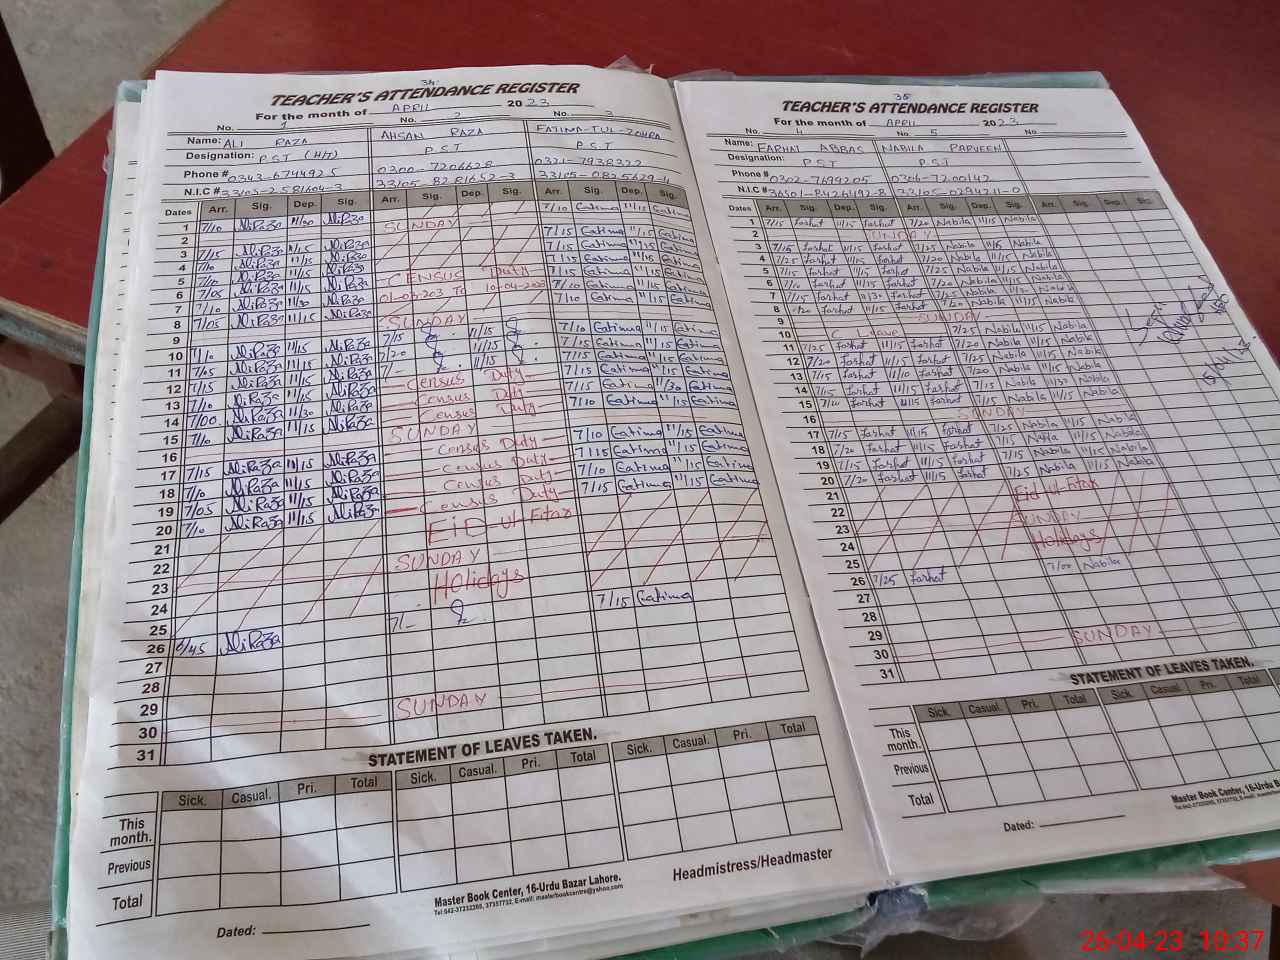 34
TEACHER'S ATTENDANCE REGISTER
For the month of APRIL 2023
No. 1 No. 2 No. 3
Name: ALI RAZA AHSAN RAZA FATIMA-TUL-ZOHRA
Designation: P.S.T (H/T) P.S.T P.S.T
Phone # 0343-6744925 0300-7206628 0321-7938322
N.I.C # 33105-2581604-3 33105-8281652-3 33105-0825629-4
Dates Arr. Sig. Dep. Sig. Arr. Sig. Dep. Sig. Arr. Sig. Dep. Sig.
1 7/10 AliRaza 11/30 AliRaza 7/10 Fatima 11/15 Fatima
2 SUNDAY
3 7/15 AliRaza 11/15 AliRaza 7/15 Fatima 11/15 Fatima
4 7/10 AliRaza 11/15 AliRaza 7/15 Fatima 11/15 Fatima
5 7/10 AliRaza 11/15 AliRaza 7/15 Fatima 11/15 Fatima
6 7/05 AliRaza 11/15 AliRaza CENSUS Duty 7/15 Fatima 11/15 Fatima
7 7/10 AliRaza 11/30 AliRaza To 7/10 Fatima 11/15 Fatima
8 7/05 AliRaza 11/15 AliRaza 7/10 Fatima 11/15 Fatima
9 SUNDAY
10 7/10 AliRaza 11/15 AliRaza 7/15 11/15 7/10 Fatima 11/15 Fatima
11 7/05 AliRaza 11/15 AliRaza 7/20 11/15 7/10 Fatima 11/15 Fatima
12 7/15 AliRaza 11/15 AliRaza 11/15 7/15 Fatima 11/15 Fatima
13 7/10 AliRaza 11/15 AliRaza Census Duty 7/15 Fatima 11/15 Fatima
14 7/00 AliRaza 11/30 AliRaza Census Duty 7/15 Fatima 11/30 Fatima
15 7/10 AliRaza 11/15 AliRaza Census Duty 7/10 Fatima 11/15 Fatima
16 SUNDAY
17 7/15 AliRaza 11/15 AliRaza Census Duty 7/10 Fatima 11/15 Fatima
18 7/10 AliRaza 11/15 AliRaza Census Duty 7/15 Fatima 11/15 Fatima
19 7/05 AliRaza 11/15 AliRaza Census Duty 7/10 Fatima 11/15 Fatima
20 7/10 AliRaza 11/15 AliRaza Census Duty 7/15 Fatima 11/15 Fatima
21 Eid-ul-Fitar
22
23 SUNDAY
24 Holidays
25
26 6/45 AliRaza 7/- 7/15 Fatima
27
28
29
30 SUNDAY
31
STATEMENT OF LEAVES TAKEN.
Sick. Casual. Pri. Total Sick. Casual. Pri. Total Sick. Casual. Pri. Total
This month.
Previous
Total
Master Book Center, 16-Urdu Bazar Lahore.
Headmistress/Headmaster
Dated:
35
TEACHER'S ATTENDANCE REGISTER
For the month of APRIL 2023
No. 4 No. 5 No
Name: FARHAT ABBAS NABILA PARVEEN
Designation: P.S.T P.S.T
Phone # 0302-7699205 0306-7200142
N.I.C # 36501-8426492-8 33105-0294211-0
Dates Arr. Sig. Dep. Sig. Arr. Sig. Dep. Sig. Arr. Sig. Dep. Sig.
1 7/15 Farhat 11/15 Farhat 7/20 Nabila 11/15 Nabila
2 SUNDAY
3 7/15 Farhat 11/15 Farhat 7/25 Nabila 11/15 Nabila
4 7/25 Farhat 11/15 Farhat 7/20 Nabila 11/15 Nabila
5 7/15 Farhat 11/15 Farhat 7/25 Nabila 11/15 Nabila
6 7/10 Farhat 11/15 Farhat 7/20 Nabila 11/15 Nabila
7 7/15 Farhat 11/30 Farhat 7/25 Nabila 11/30 Nabila
8 7/20 Farhat 11/15 Farhat 7/20 Nabila 11/15 Nabila
9 SUNDAY
10 C Leave 7/25 Nabila 11/15 Nabila
11 7/25 Farhat 11/15 Farhat 7/20 Nabila 11/15 Nabila
12 7/20 Farhat 11/15 Farhat 7/25 Nabila 11/15 Nabila
13 7/15 Farhat 11/10 Farhat 7/20 Nabila 11/15 Nabila
14 7/15 Farhat 11/15 Farhat 7/15 Nabila 11/30 Nabila
15 7/20 Farhat 11/15 Farhat 7/25 Nabila 11/15 Nabila
16 SUNDAY
17 7/15 Farhat 11/15 Farhat 7/25 Nabila 11/15 Nabila
18 7/20 Farhat 11/15 Farhat 7/15 Nabila 11/15 Nabila
19 7/15 Farhat 11/15 Farhat 7/20 Nabila 11/15 Nabila
20 7/20 Farhat 11/15 Farhat 7/25 Nabila 11/15 Nabila
21 Eid-ul-Fitar
22
23 SUNDAY
24 Holidays
25
26 7/25 Farhat 7/00 Nabila
27
28
29
30 SUNDAY
31
STATEMENT OF LEAVES TAKEN.
Sick. Casual. Pri. Total Sick. Casual. Pri. Total
This month.
Previous
Total
Master Book Center, 16-Urdu B
Dated:
26-04-23 10:37